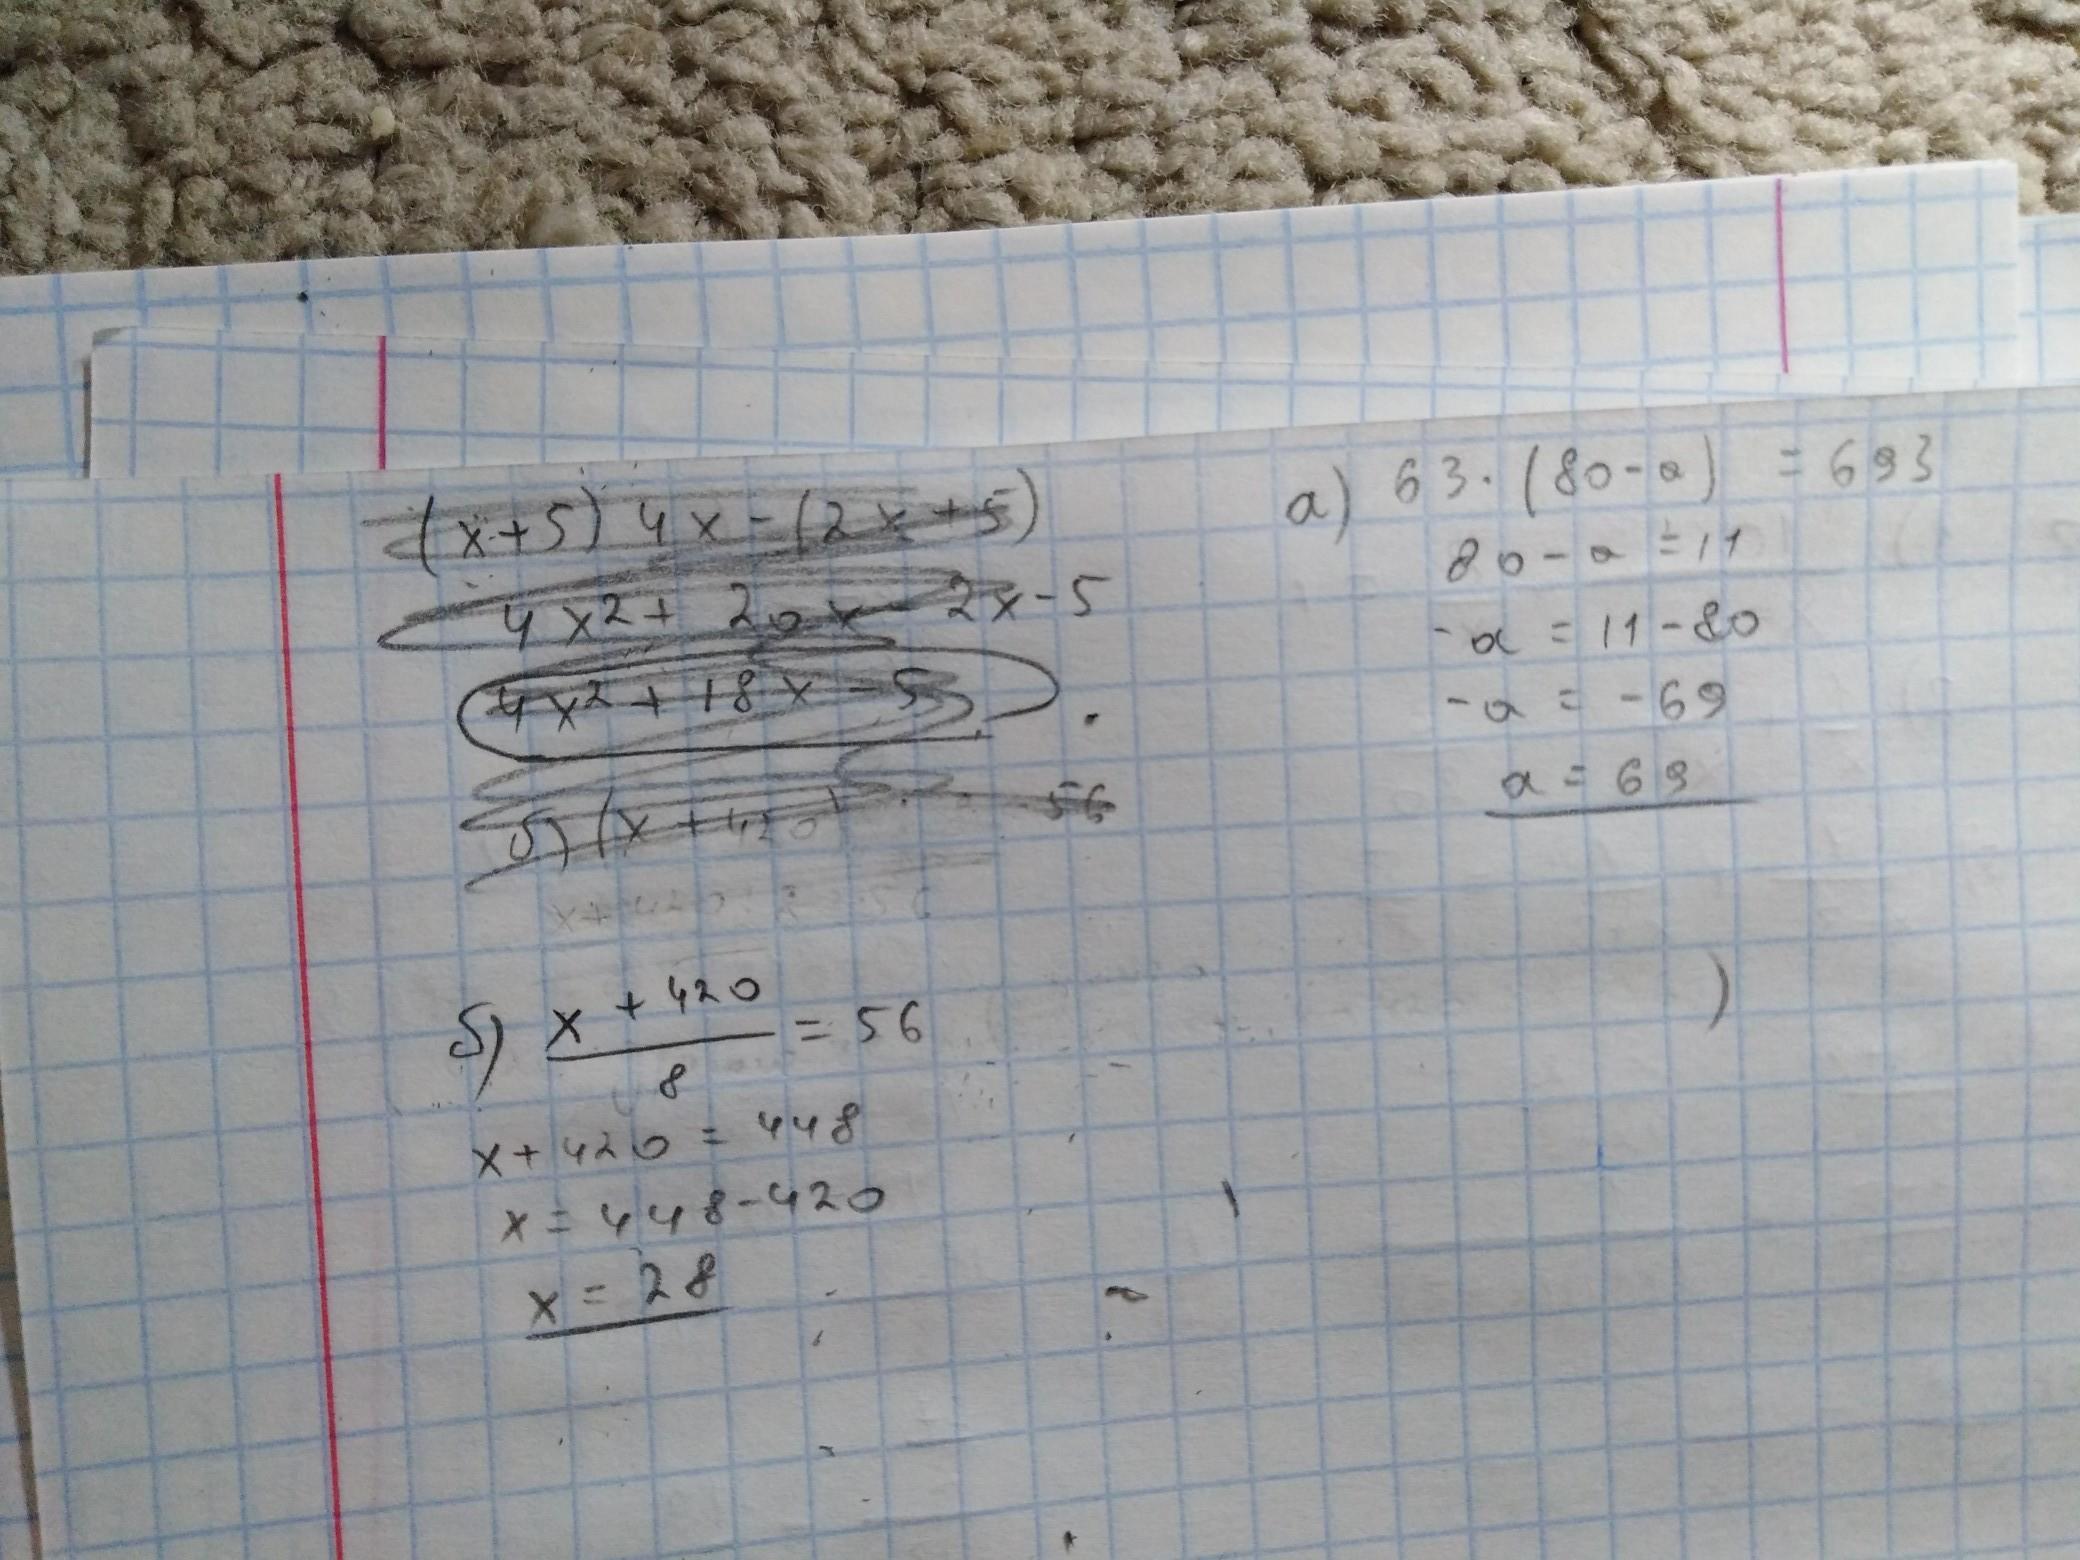 (x+5) 4x-(2x+5)
4x2+ 20x - 2x-5
4x2+18x-5
б) (x+420) 56
б) x + 420 / 8 = 56
x+420 = 448
x = 448-420
x = 28
а) 63·(80-a) = 693
80-a = 11
-a = 11-80
-a = -69
a = 69
)